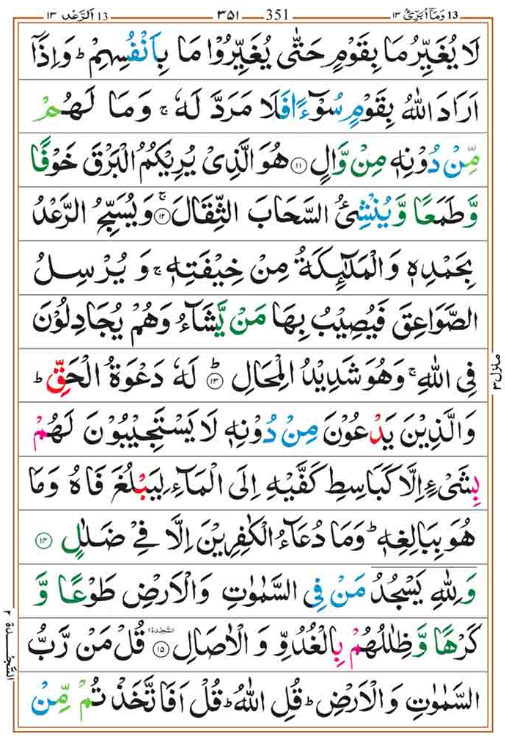 13 وَمَآ اُبَرِّئُ ١٣ 351 ٣٥١ 13 اَلرَّعْد ١٣
لَا يُغَيِّرُ مَا بِقَوْمٍ حَتّٰى يُغَيِّرُوْا مَا بِاَنْفُسِهِمْ ؕ وَاِذَاۤ
اَرَادَ اللّٰهُ بِقَوْمٍ سُوْٓءًا فَلَا مَرَدَّ لَهٗ ۚ وَمَا لَهُمْ
مِّنْ دُوْنِهٖ مِنْ وَّالٍ ﴿۱۱﴾ هُوَ الَّذِىْ يُرِيْكُمُ الْبَرْقَ خَوْفًا
وَّطَمَعًا وَّيُنْشِئُ السَّحَابَ الثِّقَالَ ۚ﴿۱۲﴾ وَيُسَبِّحُ الرَّعْدُ
بِحَمْدِهٖ وَالْمَلٰٓئِكَةُ مِنْ خِيْفَتِهٖ ۚ وَ يُرْسِلُ
الصَّوَاعِقَ فَيُصِيْبُ بِهَا مَنْ يَّشَآءُ وَهُمْ يُجَادِلُوْنَ
فِى اللّٰهِ ۚ وَهُوَ شَدِيْدُ الْمِحَالِ ؕ﴿۱۳﴾ لَهٗ دَعْوَةُ الْحَقِّ ؕ
وَالَّذِيْنَ يَدْعُوْنَ مِنْ دُوْنِهٖ لَا يَسْتَجِيْبُوْنَ لَهُمْ
بِشَىْءٍ اِلَّا كَبَاسِطِ كَفَّيْهِ اِلَى الْمَآءِ لِيَبْلُغَ فَاهُ وَمَا
هُوَ بِبَالِغِهٖ ؕ وَمَا دُعَآءُ الْكٰفِرِيْنَ اِلَّا فِىْ ضَلٰلٍ ﴿۱۴﴾
وَلِلّٰهِ يَسْجُدُ مَنْ فِى السَّمٰوٰتِ وَالْاَرْضِ طَوْعًا وَّ
كَرْهًا وَّظِلٰلُهُمْ بِالْغُدُوِّ وَ الْاٰصَالِ ﴿۱۵﴾ السَّجْدَة قُلْ مَنْ رَّبُّ
السَّمٰوٰتِ وَ الْاَرْضِ ؕ قُلِ اللّٰهُ ؕ قُلْ اَفَاتَّخَذْ تُمْ مِّنْ
منزل ٣
السَّجْدَة ٢